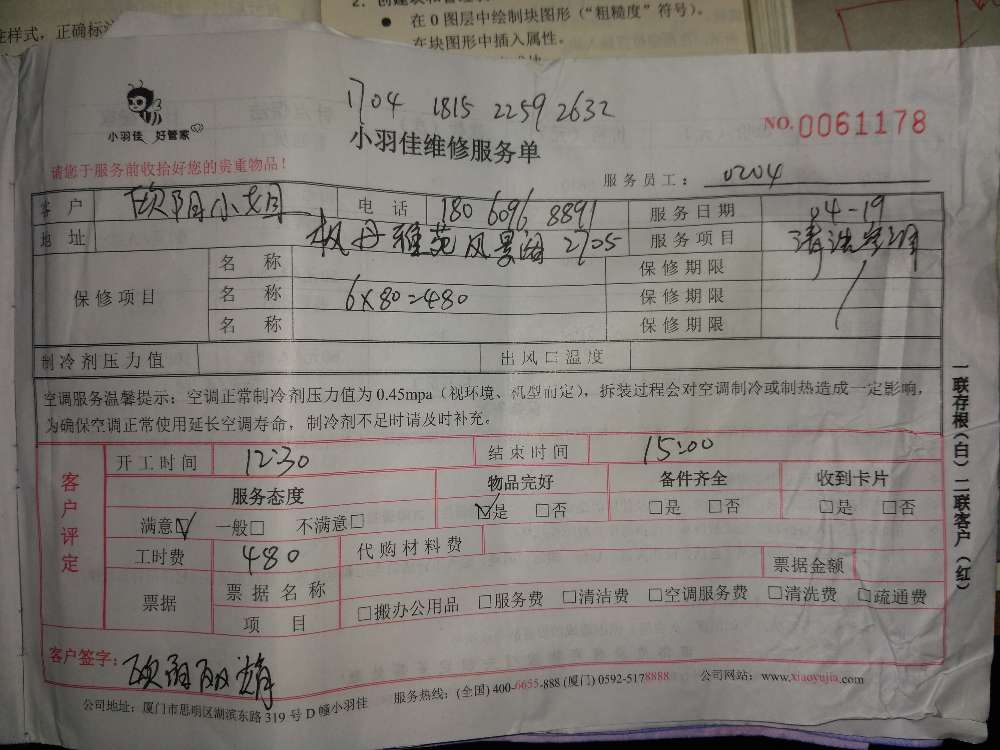 注样式，正确标注
2. 创建块和管理
● 在 0 图层中绘制块图形（“粗糙度”符号）。
在块图形中插入属性。
小羽佳 好管家
1704 1815 2259 2632
小羽佳维修服务单
NO. 0061178
请您于服务前收拾好您的贵重物品！
服务员工： 0204
客 户 欧阳小姐 电 话 180 6096 8891 服务日期 04-19
地 址 枫丹雅苑风景阁 2705 服务项目 清洗空调
保修项目 名 称 保修期限
名 称 6×80=480 保修期限
名 称 保修期限
制冷剂压力值 出风口温度
空调服务温馨提示：空调正常制冷剂压力值为 0.45mpa（视环境、机型而定），拆装过程会对空调制冷或制热造成一定影响，
为确保空调正常使用延长空调寿命，制冷剂不足时请及时补充。
客户评定 开工时间 12:30 结束时间 15:00
服务态度 物品完好 备件齐全 收到卡片
满意☑ 一般□ 不满意□ ☑是 □否 □是 □否 □是 □否
工时费 480 代购材料费
票据 票据名称 票据金额
项 目 □搬办公用品 □服务费 □清洁费 □空调服务费 □清洗费 □疏通费
客户签字：欧阳丽
公司地址：厦门市思明区湖滨东路 319 号 D 幢小羽佳 服务热线：(全国) 400-6655-888 (厦门) 0592-5178888 公司网站：www.xiaoyujia.com
一联存根（白）二联客户（红）